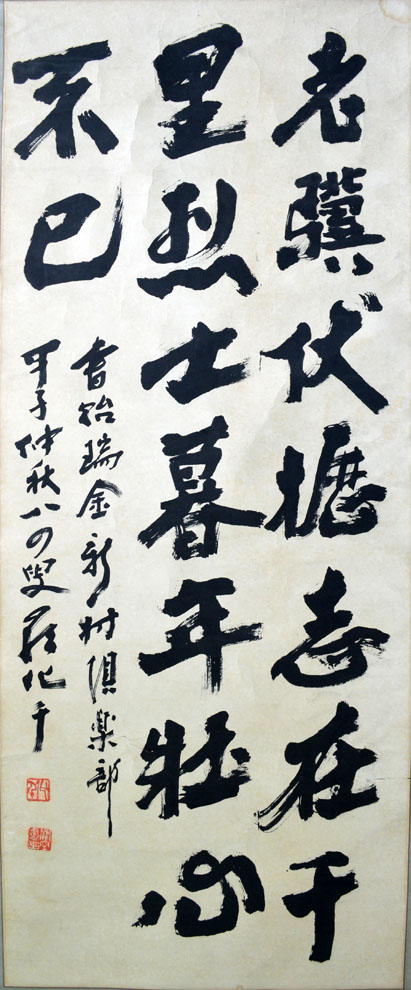 老骥伏櫪志在千
里烈士暮年壮心
不已
書贻瑞金新村俱樂部
甲子仲秋八四叟薩化千